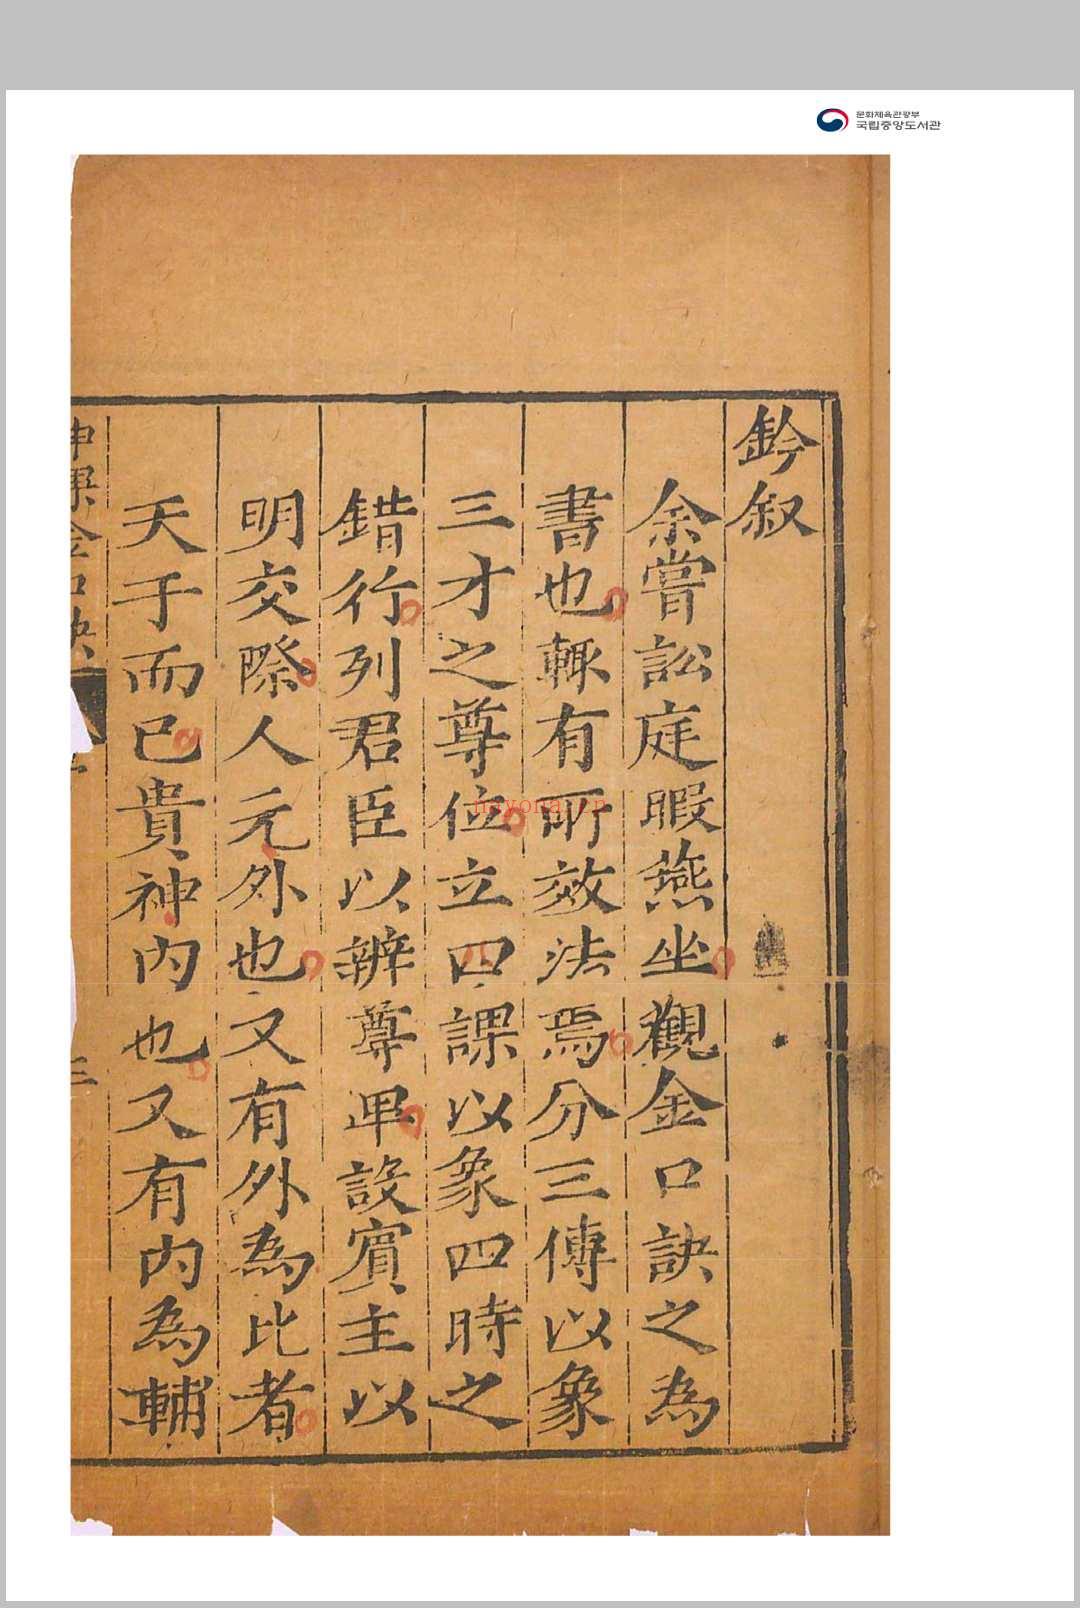 문화체육관광부
국립중앙도서관
鈐叙
余嘗訟庭暇燕坐觀金口訣之為
書也輙有所效法焉分三傳以象
三才之尊位立四課以象四時之
錯行列君臣以辨尊卑設賓主以
明交際人元外也又有外為比者
天于而已貴神内也又有内為輔
金口訣
三
nayona.cn